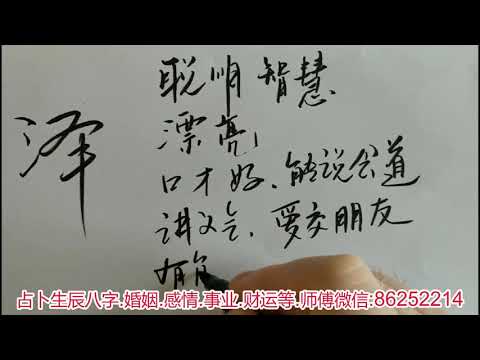 泽
聪明智慧
漂亮
口才好、能说会道
讲义气、爱交朋友
有
占卜生辰八字.婚姻.感情.事业.财运等.师傅微信:86252214